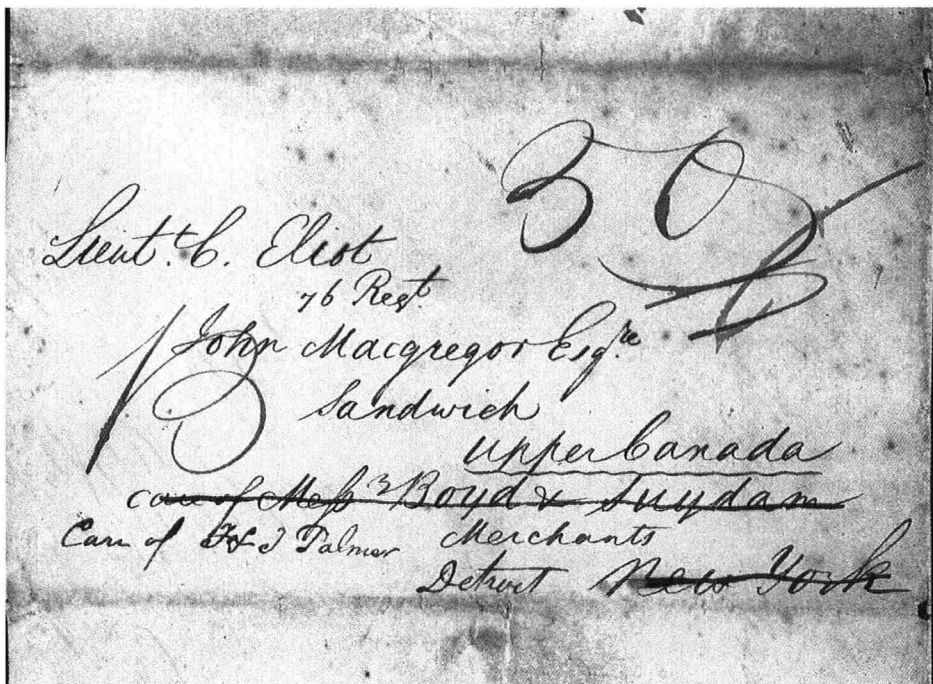 30
Lieut.t C. Eliot
76 Regt.
John Macgregor Esqre
Sandwich
Upper Canada
care of Messrs Boyd & Suydam
Care of T & J Palmer Merchants
Detroit New York